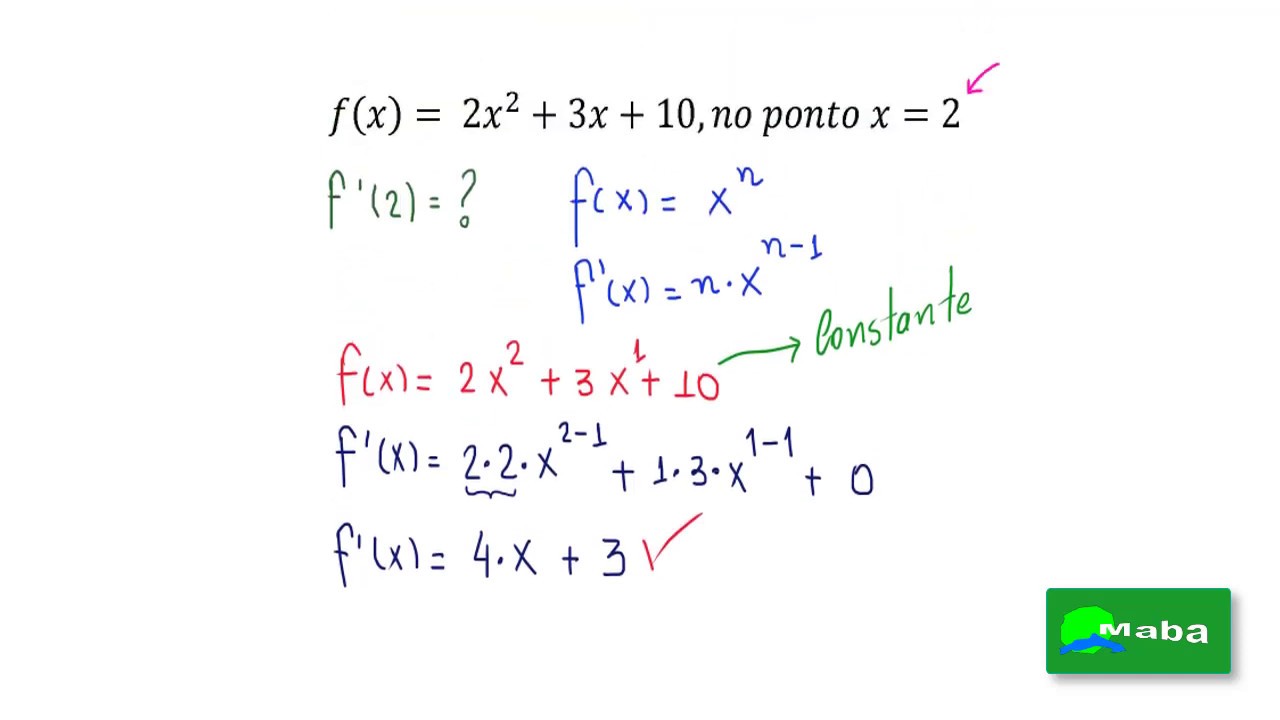 f(x) = 2x² + 3x + 10, no ponto x = 2
f'(2) = ?
f(x) = xⁿ
f'(x) = n·xⁿ⁻¹
f(x) = 2x² + 3x¹ + 10 → Constante
f'(x) = 2·2·x²⁻¹ + 1·3·x¹⁻¹ + 0
f'(x) = 4·x + 3 ✓
Maba